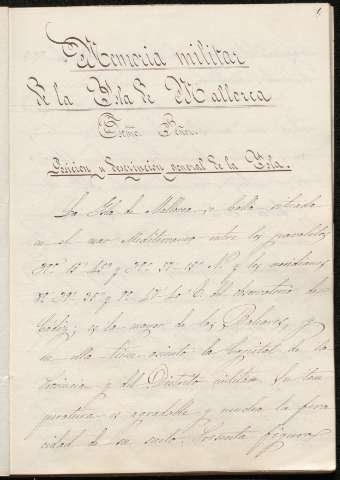 1
Memoria militar
de la Ysla de Mallorca
Excmo. Señor.
Posicion y descripcion general de la Ysla.
La Ysla de Mallorca se halla situada
en el mar Mediterraneo entre los paralelos
y N. y los meridianos
y del observatorio de
Cádiz; es la mayor de las Baleares, y
en ella tiene asiento la Capital de la
Provincia y del Distrito militar. Su tem
peratura es agradable y mucha la fera
cidad de su suelo. Presenta figura